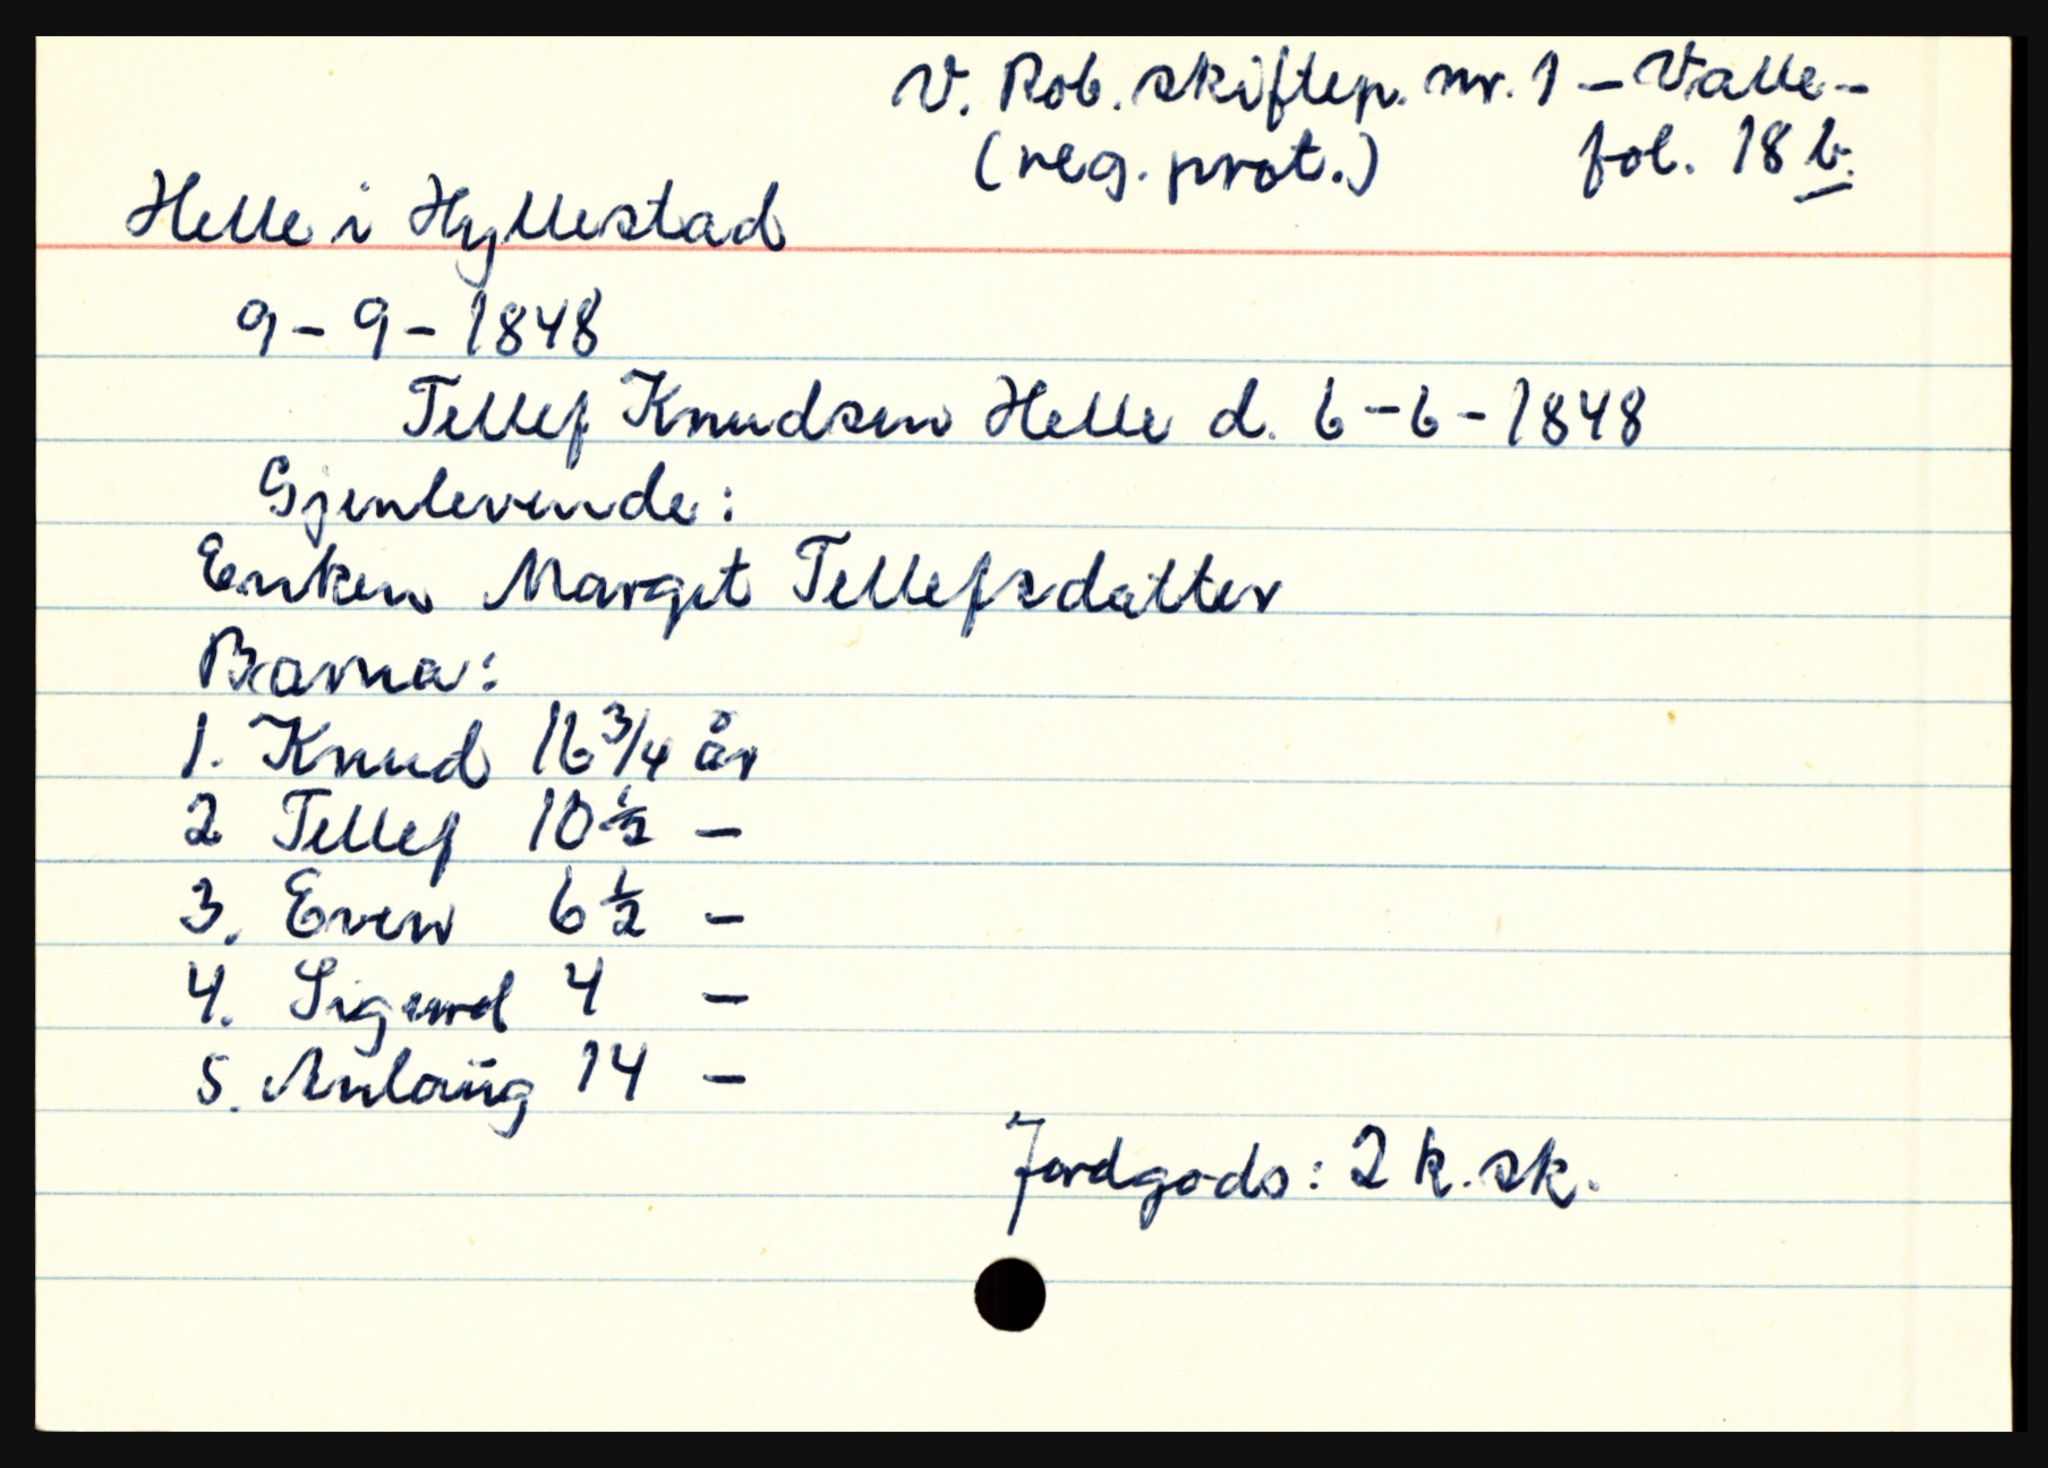 V. Rob. skiftep. nr. 1 – Valle –
(reg. prot.) fol. 18 b.
Helle i Hyllestad
9 – 9 – 1848
Tellef Knudsen Helle d. 6 – 6 – 1848
Gjenlevende:
Enken Margit Tellefsdatter
Barna:
1. Knud 16 3/4 år
2 Tellef 10 1/2 –
3. Even 6 1/2 –
4. Sigurd 4 –
5. Anlaug 14 –
Jordgods: 2 k. sk.